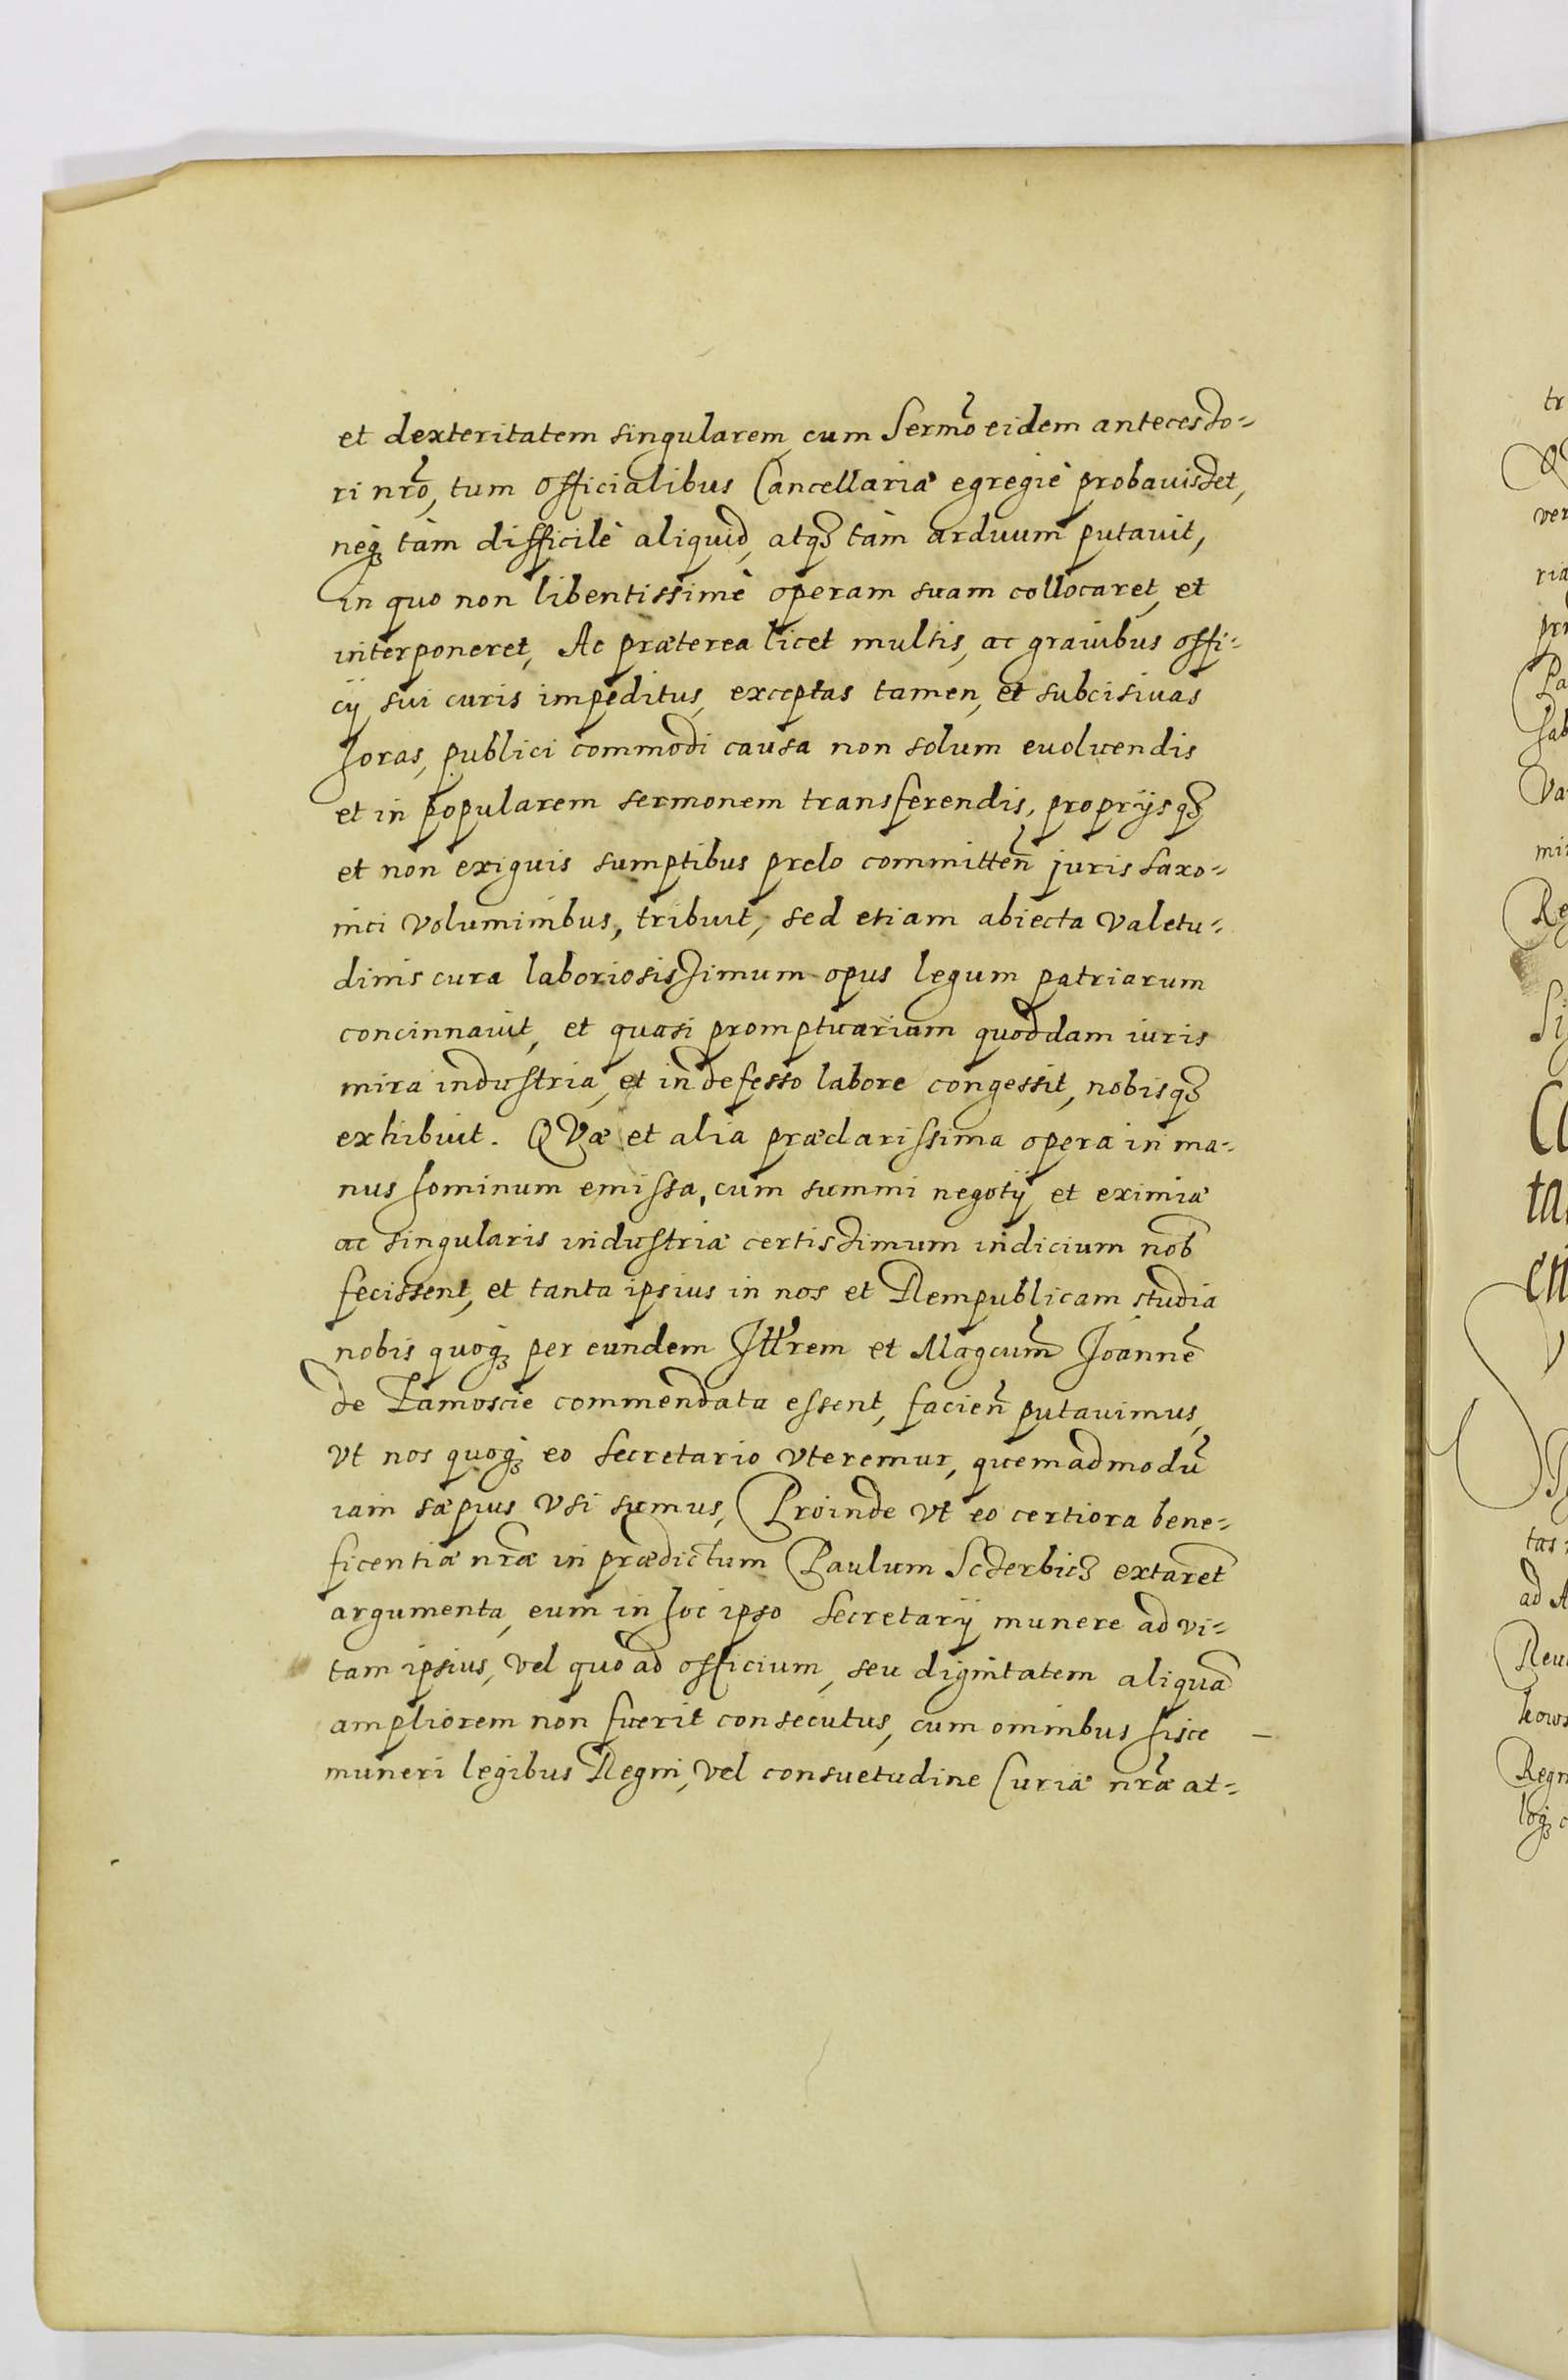 et dexteritatem singularem, cum Sermo eidem antecesso=
ri nro, tum Officialibus Cancellariæ egregiè probauisset,
neq; tàm difficilè aliquid, atq; tàm arduum putauit,
in quo non libentissimè operam suam collocaret, et
interponeret, Ac præterea licet multis, ac grauibus offi=
cij sui curis impeditus, exceptas tamen, et subcisiuas
horas, publici commodi causa non solum euoluendis
et in popularem sermonem transferendis, proprijsq;
et non exiguis sumptibus prelo committen̄ juris saxo=
nici voluminibus, tribuit, sed etiam abiecta valetu=
dinis cura laboriosissimum opus legum patriarum
concinnauit, et quasi promptuarium quoddam iuris
mira industria, et indefesso labore congessit, nobisq;
exhibuit. QVæ et alia præclarissima opera in ma=
nus hominum emissa, cum summi negotij et eximiæ
ac singularis industriæ certissimum indicium nob
fecissent, et tanta ipsius in nos et Rempublicam studia
nobis quoq; per eundem Illrem et Magcum Joannē
de Zamoscie commendata essent, facien̄ putauimus,
vt nos quoq; eo Secretario vteremur, quemadmodū
iam sæpius vsi sumus, Proinde vt eo certiora bene=
ficentiæ nræ in prædictum Paulum Sczerbicz extarent
argumenta, eum in hoc ipso Secretarij munere ad vi=
tam ipsius, vel quo ad officium, seu dignitatem aliquā
ampliorem non fuerit consecutus, cum omnibus hisce
muneri legibus Regni, vel consuetudine Curiæ nræ at=
tr
ver
ria
Pa
hab
Va
Re
Si
ta
tas
ad A
Reu
kows
Regn
loq; c